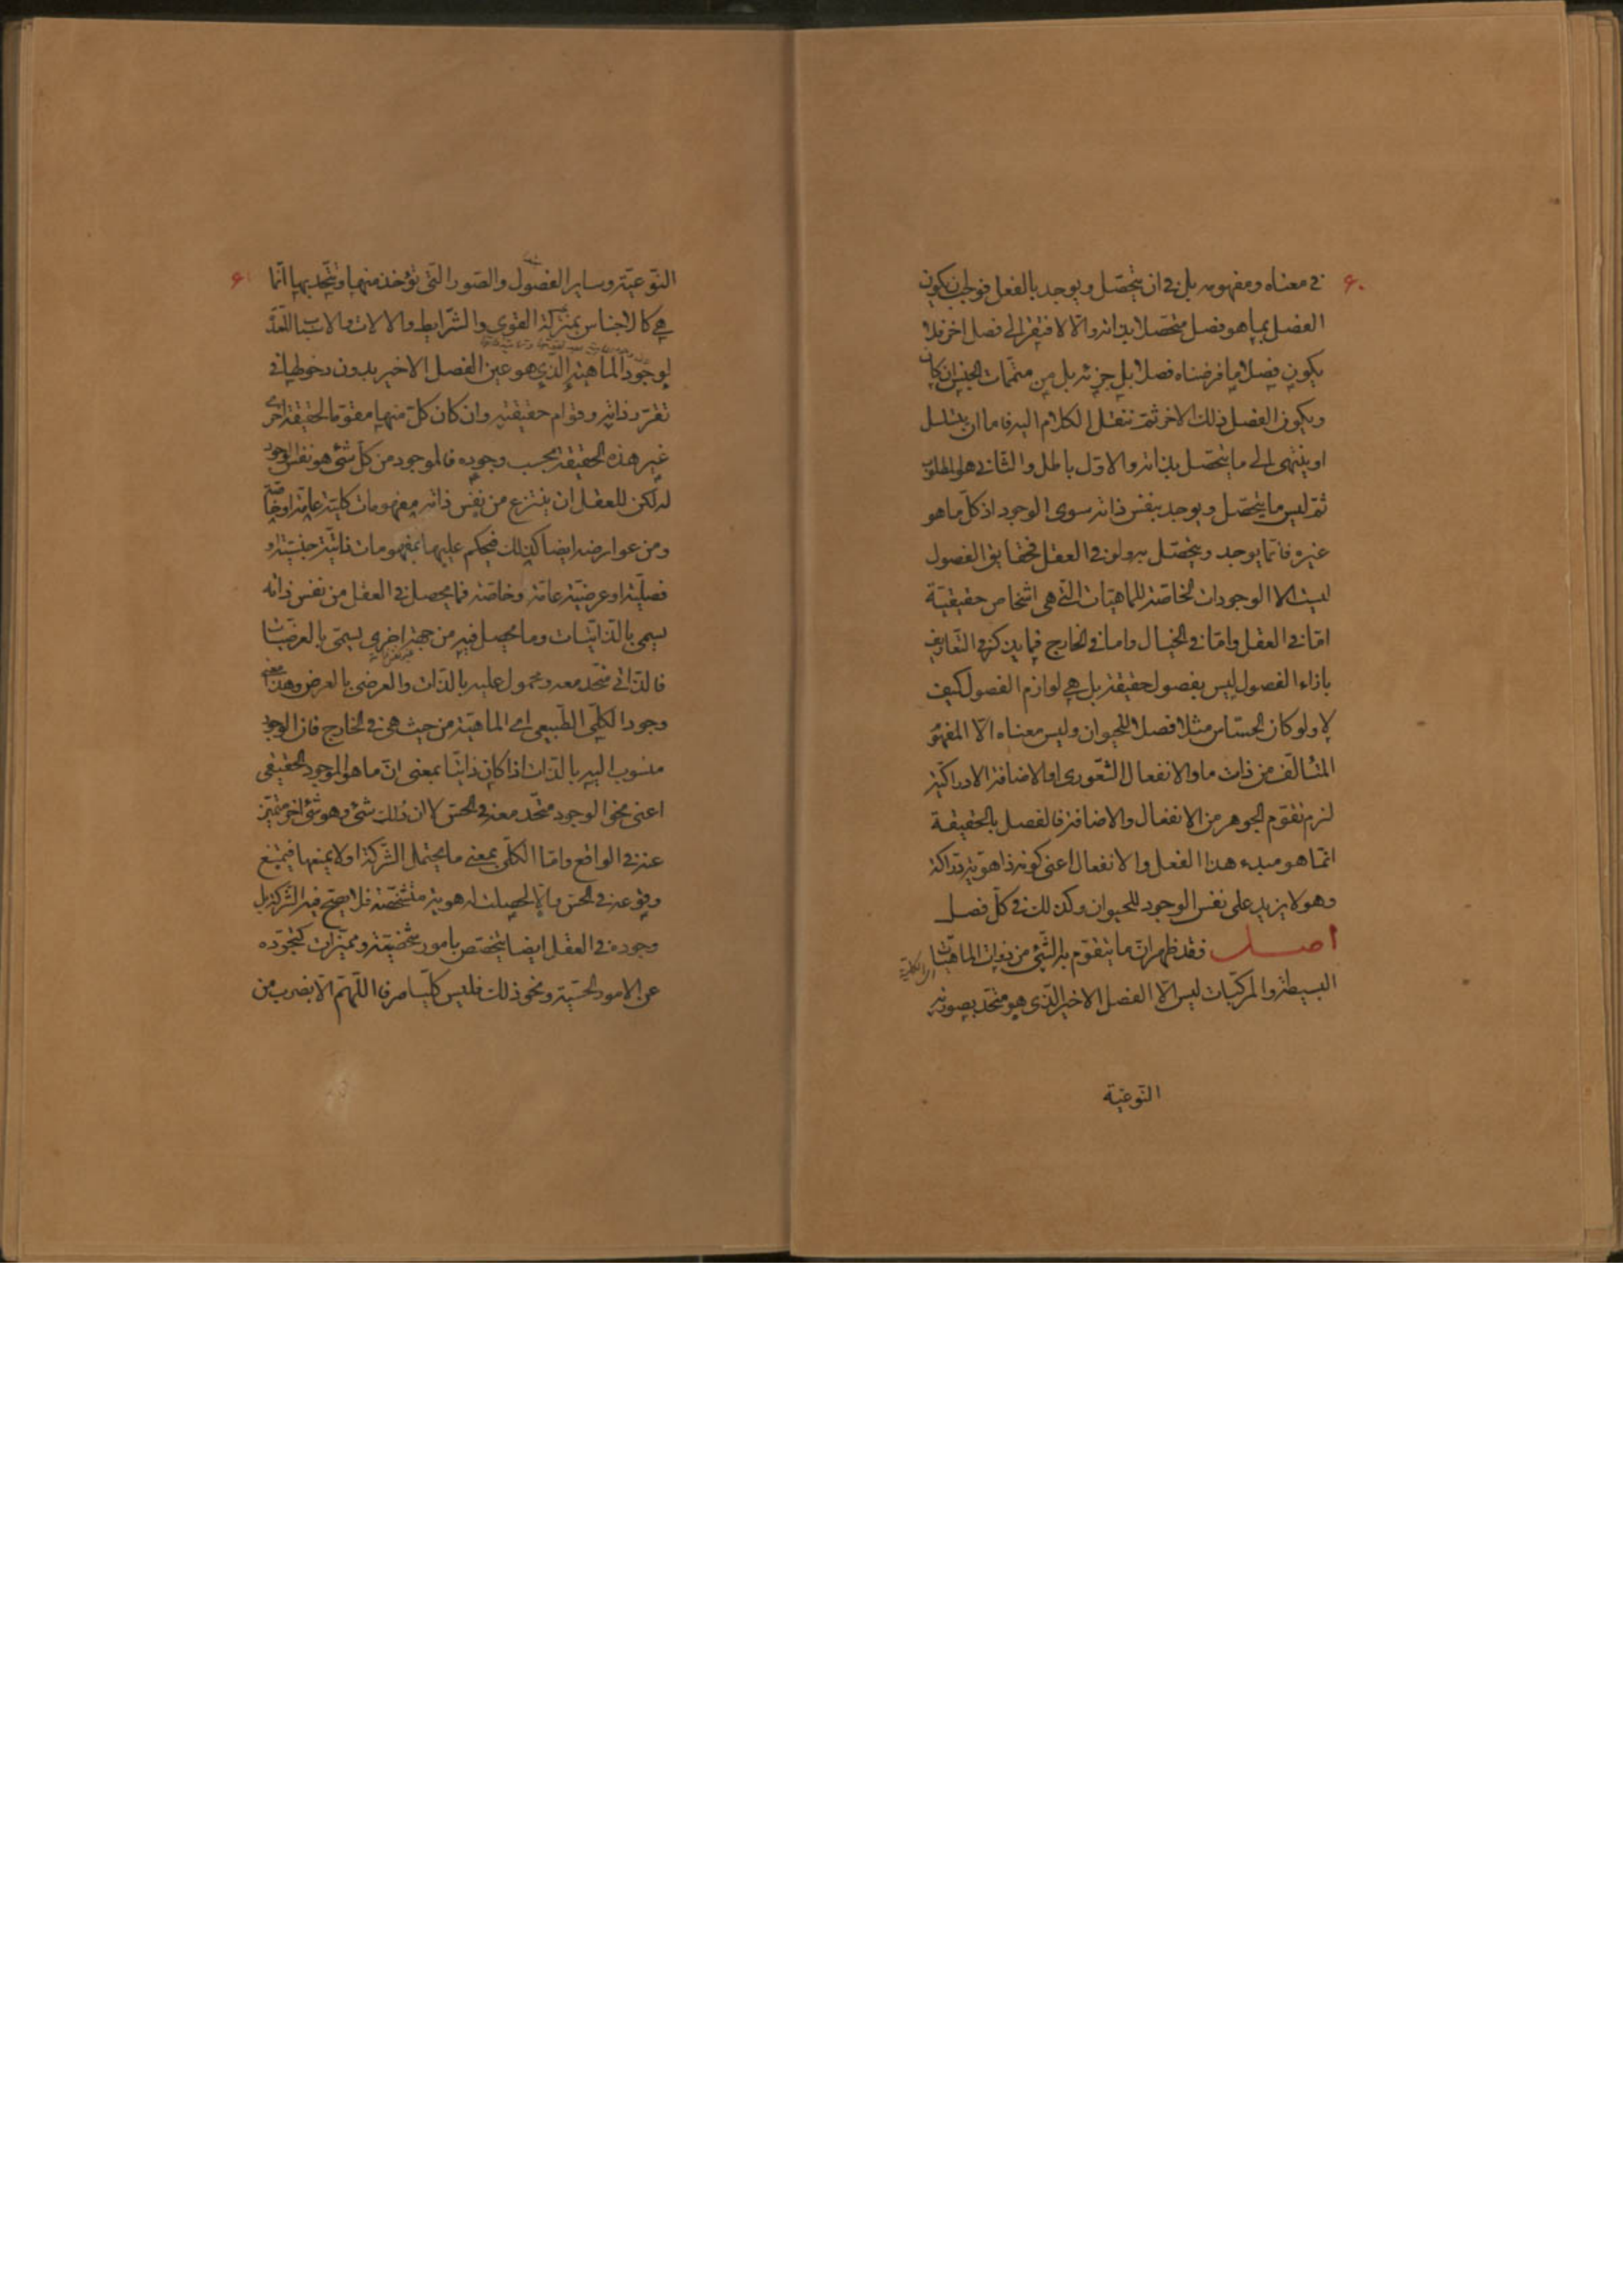 ۶۰
في معناه ومفهومه بل في ان يتحصّل ويوجد بالفعل فوجب ان يكون
الفصل بما هو فصل متحصلا بذاته والا لافتقر الى فصل اخر فلا
يكون فصلا ما فرضناه فصلا بل جزئه بل من متممات الجنس ان كان
ويكون الفصل ذلك الاخر ثمّ ننقل الكلام اليه فاما ان يتسلسل
او ينتهى الى ما يتحصّل بذاته والاوّل باطل والثانى هو المطلوب
ثمّ ليس ما يتحصّل ويوجد بنفس ذاته سوى الوجود اذ كلّ ما هو
غيره فانّما يوجد ويتحصّل به ولو في العقل فحقايق الفصول
ليست الا الوجودات الخاصّة للماهيّات الّتى هى اشخاص حقيقيّة
امّا في العقل وامّا في الخيال واما في الخارج فما يذكر في التّعاريف
بازاء الفصول ليس بفصول حقيقة بل هي لوازم الفصول كيف
لا ولو كان الحسّاس مثلا فصلا للحيوان وليس معناه الّا المفهوم
المتألّف من ذات ما والانفعال الشّعورى او الاضافة الادراكيّة
لزم تقوّم الجوهر من الانفعال والاضافة فالفصل بالحقيقة
انّما هو مبدء هذا الفعل والانفعال اعنى كونه ذا هويّة درّاكة
وهو لا يزيد على نفس الوجود للحيوان وكذلك في كلّ فصل
اصل فقد ظهر انّ ما يتقوّم به الشّئ من ذوات الماهيّات
البسيطة والمركّبات ليس الّا الفصل الاخير الّذى هو متّحد بصورته
النّوعيّة
۶۱
النّوعيّة وساير الفصول والصّور الّتى تؤخذ منها وتتّحد بها انّما
هي كالاجناس بمنزلة القوى والشّرايط والالات والاسباب المعدّة
لوجود الماهية الّذي هو عين الفصل الاخير بدون دخولها في
تقرّر ذاته وقوام حقيقته وان كان كلّ منها مقوّما لحقيقة اخرى
غير هذه الحقيقة بحسب وجوده فالموجود من كلّ شئ هو نفس الوجود
له لكن للعقل ان ينتزع من نفس ذاته مفهومات كليّة عامّة او خاصّة
ومن عوارضه ايضا كذلك فيحكم عليها بمفهومات ذاتيّة جنسيّة و
فصليّة او عرضيّة عامّة وخاصّة فما يحصل في العقل من نفس ذاته
يسمى بالذّاتيّات وما يحصل فيه من جهة اخرى يسمّى بالعرضيّات
فالذّاتي متّحد معه ومحمول عليه بالذّات والعرضى بالعرض وهذا معنى
وجود الكلّى الطّبيعى اي الماهيّة من حيث هى في الخارج فانّ الوجود
منسوب اليه بالذّات اذا كان ذاتيّا بمعنى انّ ما هو الموجود الحقيقى
اعنى نحو الوجود متّحد معه في الحسّ لا ان ذلك شئ وهو شئ اخر متميّز
عنه في الواقع وامّا الكلّى بمعنى ما يحتمل الشّركة او لا يمنعها فيمتنع
وقوعه في الحسّ والّا لحصلت له هويّة متشخّصة فلا يصحّ فيه الشّركة بل
وجوده في العقل ايضا يتخصّص بامور شخصيّة ومميّزات كتجرّده
عن الامور الحسّيّة ونحو ذلك فليس كلّيّا صرفا اللّهمّ الّا بضرب من